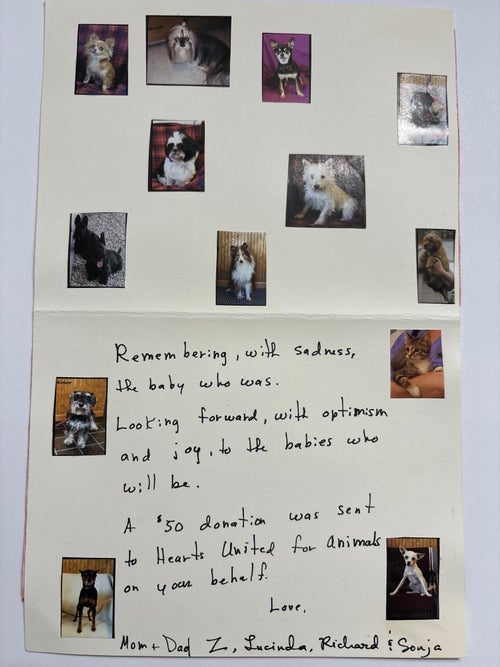 Remembering, with sadness,
the baby who was.
Looking forward, with optimism
and joy, to the babies who
will be.
A $50 donation was sent
to Hearts United for Animals
on your behalf.
Love,
Mom + Dad Z, Lucinda, Richard & Sonja